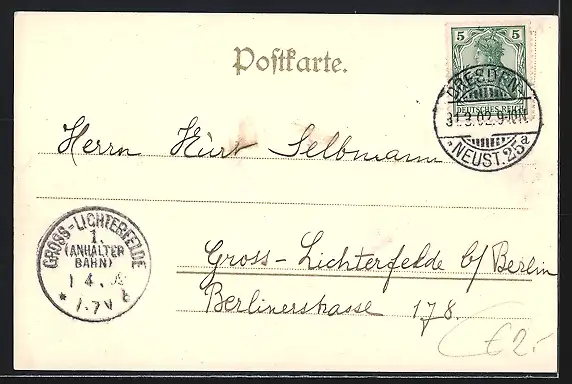 Postkarte.
5 5
DEUTSCHES REICH
DRESDEN
31.3.02.9-10N.
* NEUST. 25 a
Herrn Kurt Selbmann
GROSS-LICHTERFELDE
1.
(ANHALTER
BAHN)
1 4.
* 1-7V
Gross-Lichterfelde b/Berlin
Berlinerstrasse 178
€ 2.-